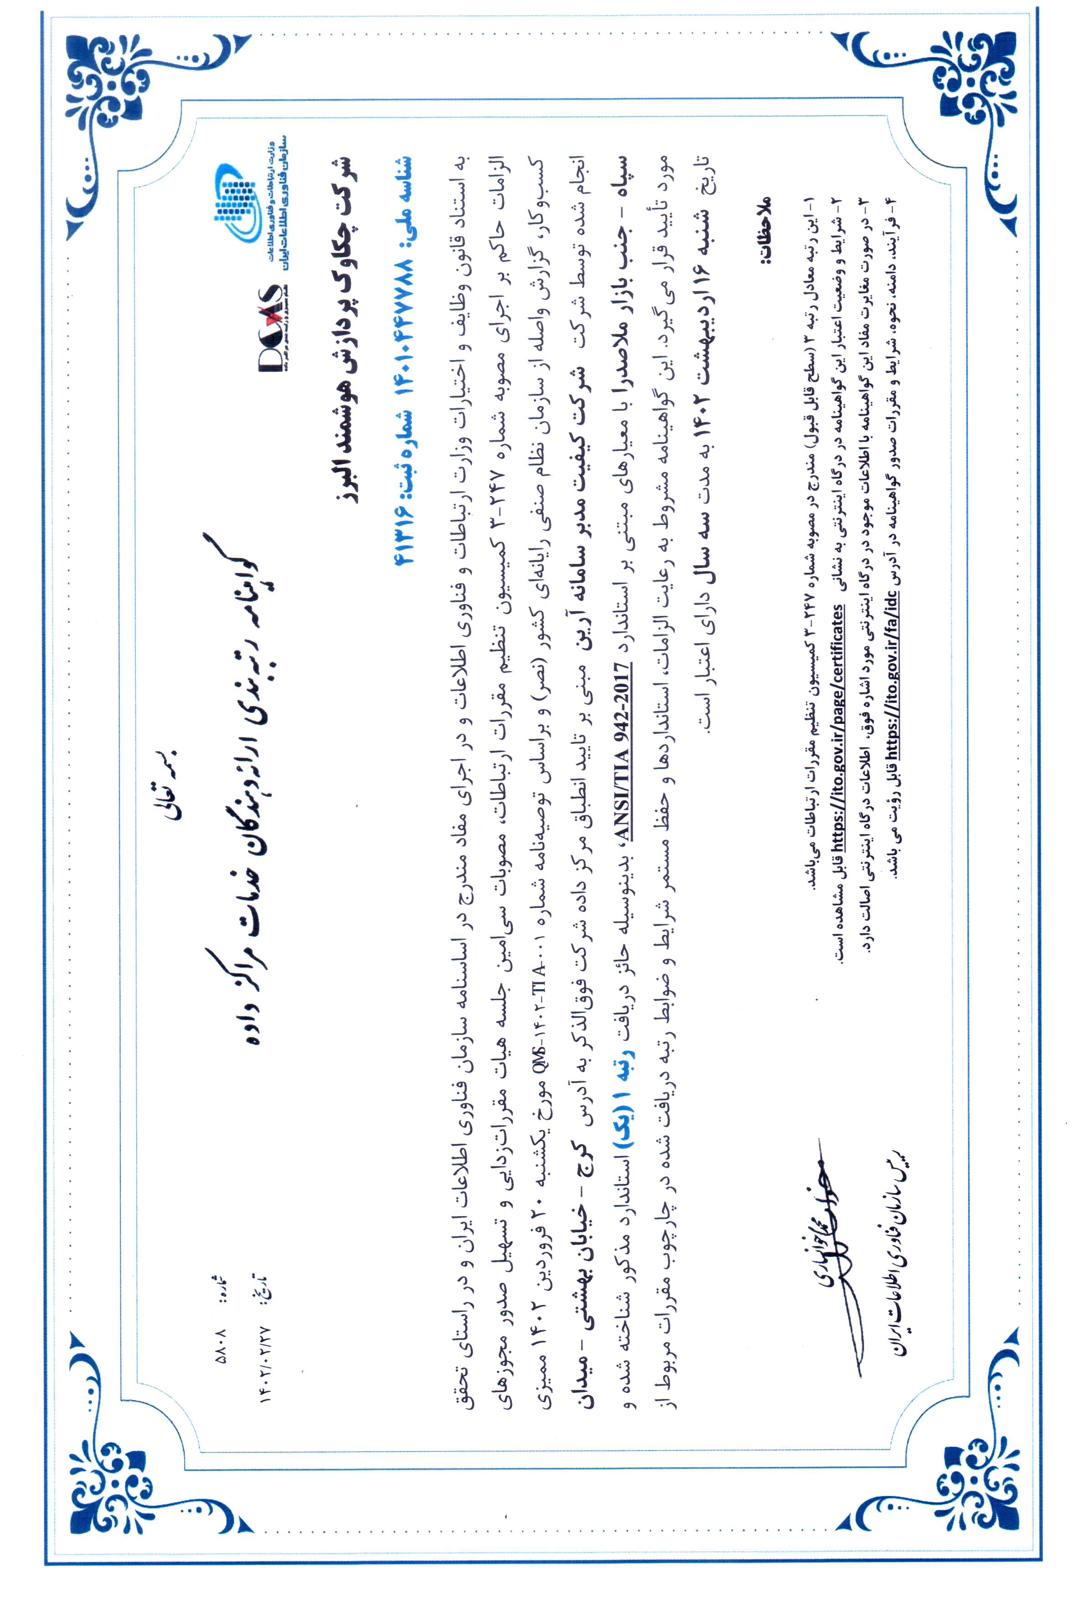 بسمه تعالی
گواهینامه رتبه بندی ارائه دهندگان خدمات مراکز داده
وزارت ارتباطات و فناوری اطلاعات
سازمان فناوری اطلاعات ایران
DCAS
شماره: ۵۸۰۸
تاریخ: ۱۴۰۲/۰۲/۲۷
شرکت چکاوک پردازش هوشمند البرز
شناسه ملی: ۱۴۰۱۰۴۴۷۷۸۸ شماره ثبت: ۴۱۳۱۶
به استناد قانون وظایف و اختیارات وزارت ارتباطات و فناوری اطلاعات و در اجرای مفاد مندرج در اساسنامه سازمان فناوری اطلاعات ایران و در راستای تحقق
الزامات حاکم بر اجرای مصوبه شماره ۲۴۷-۳ کمیسیون تنظیم مقررات ارتباطات، مصوبات سی‌امین جلسه هیات مقررات‌زدایی و تسهیل صدور مجوزهای
کسب‌وکار، گزارش واصله از سازمان نظام صنفی رایانه‌ای کشور (نصر) و براساس توصیه‌نامه شماره QMS-۱۴۰۲-TIA-۰۰۱ مورخ یکشنبه ۲۰ فروردین ۱۴۰۲ ممیزی
انجام شده توسط شرکت شرکت کیفیت مدبر سامانه آرین مبنی بر تایید انطباق مرکز داده شرکت فوق‌الذکر به آدرس کرج - خیابان بهشتی - میدان
سپاه - جنب بازار ملاصدرا با معیارهای مبتنی بر استاندارد ANSI/TIA 942-2017، بدینوسیله حائز دریافت رتبه ۱ (یک) استاندارد مذکور شناخته شده و
مورد تأیید قرار می‌گیرد. این گواهینامه مشروط به رعایت الزامات، استانداردها و حفظ مستمر شرایط و ضوابط رتبه دریافت شده در چارچوب مقررات مربوط از
تاریخ شنبه ۱۶ اردیبهشت ۱۴۰۲ به مدت سه سال دارای اعتبار است.
ملاحظات:
۱- این رتبه معادل رتبه ۳ (سطح قابل قبول) مندرج در مصوبه شماره ۲۴۷-۳ کمیسیون تنظیم مقررات ارتباطات می‌باشد.
۲- شرایط و وضعیت اعتبار این گواهینامه در درگاه اینترنتی به نشانی https://ito.gov.ir/page/certificates قابل مشاهده است.
۳- در صورت مغایرت مفاد این گواهینامه با اطلاعات موجود در درگاه اینترنتی مورد اشاره فوق، اطلاعات درگاه اینترنتی اصالت دارد.
۴- فرآیند، دامنه، نحوه، شرایط و مقررات صدور گواهینامه در آدرس https://ito.gov.ir/fa/idc قابل رؤیت می باشد.
محمد خوانساری
رییس سازمان فناوری اطلاعات ایران